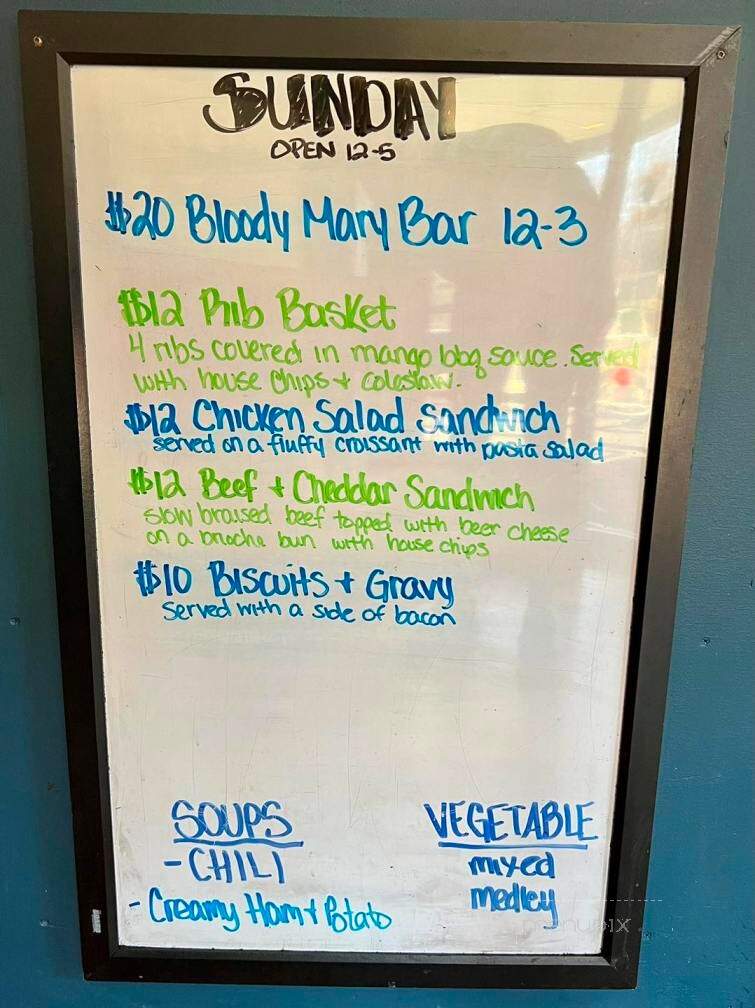 SUNDAY
OPEN 12-5
$20 Bloody Mary Bar 12-3
$12 Rib Basket
4 ribs covered in mango bbq sauce. Served
with house chips + coleslaw.
$12 Chicken Salad Sandwich
served on a fluffy croissant with pasta salad
$12 Beef + Cheddar Sandwich
slow braised beef topped with beer cheese
on a brioche bun with house chips
$10 Biscuits + Gravy
Served with a side of bacon
SOUPS
- CHILI
- Creamy Ham + Potato
VEGETABLE
mixed
medley
menupix